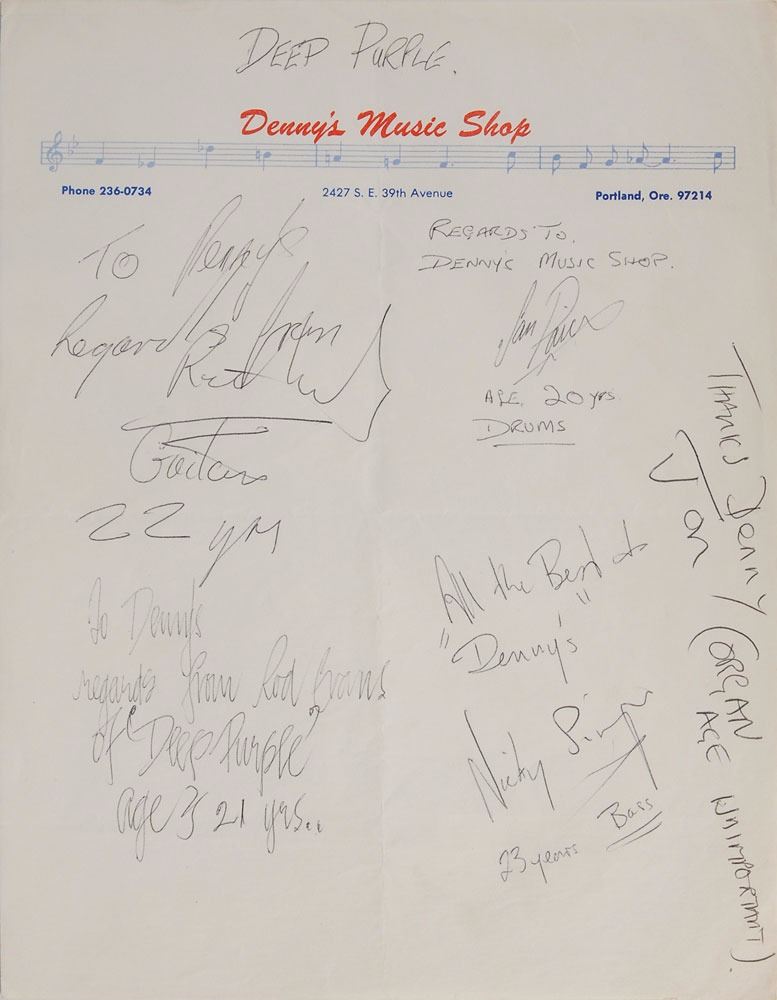 DEEP PURPLE.
Denny's Music Shop
Phone 236-0734
2427 S. E. 39th Avenue
Portland, Ore. 97214
TO Denny's
Regards from
Guitar
22 yrs
REGARDS TO.
DENNY'S MUSIC SHOP.
Ian Paice
AGE. 20 yrs
DRUMS
To Denny's
regards from Rod Evans
of "Deep Purple"
age 21 yrs..
All the Best to
"Denny's"
Nicky Simper
Bass
23 years
THANKS Denny (ORGAN
Jon AGE UNIMPORTANT).